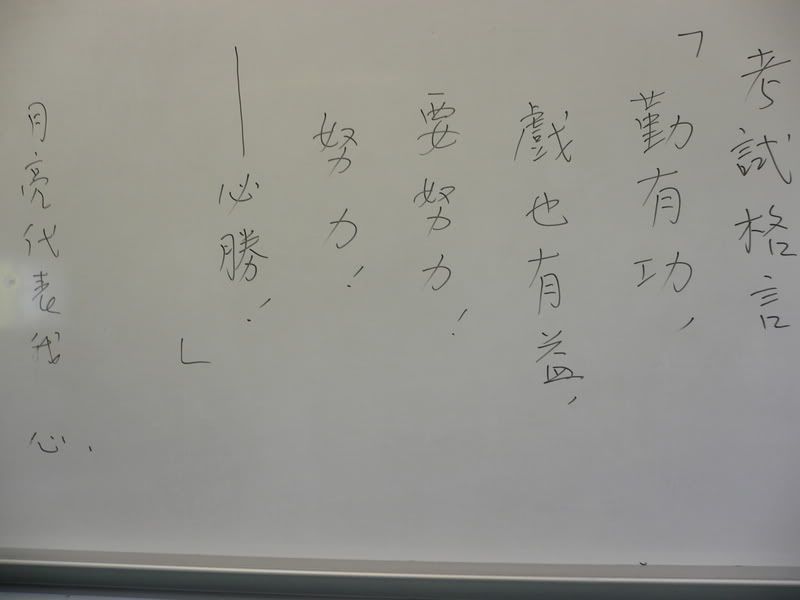 考試格言
「勤有功，
戲也有益，
要努力！
努力！
—必勝！
」
月亮代表我 心.